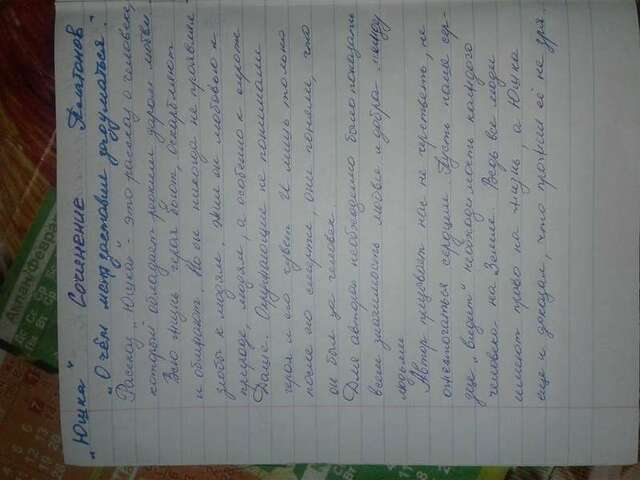 Акпан/Феврал
„Юшка" Сочинение Платонов
„О чём меня заставил задуматься".
Рассказ „Юшка" - это рассказ о человеке,
который обладает редким даром любви.
Всю жизнь героя бьют, оскарбляют
и обижают. Но он никогда не проявлял
злобы к людям. Жил он любовью к
природе, людям, а особенно к сироте
Даше. Окружающие не понимали
героя и его чувств. И лишь только
после его смерти, они поняли, что
он был за человек.
Для автора необходимо было показать
всем значимость любви и добра между
людьми
Автор призывает нас не черстветь, не
ожесточаться сердцем. Пусть наше сер-
дце „видит" необходимость каждого
человека на Земле. Ведь все люди
имеют право на жизнь, а Юшка
еще и доказал, что прожил её не зря.